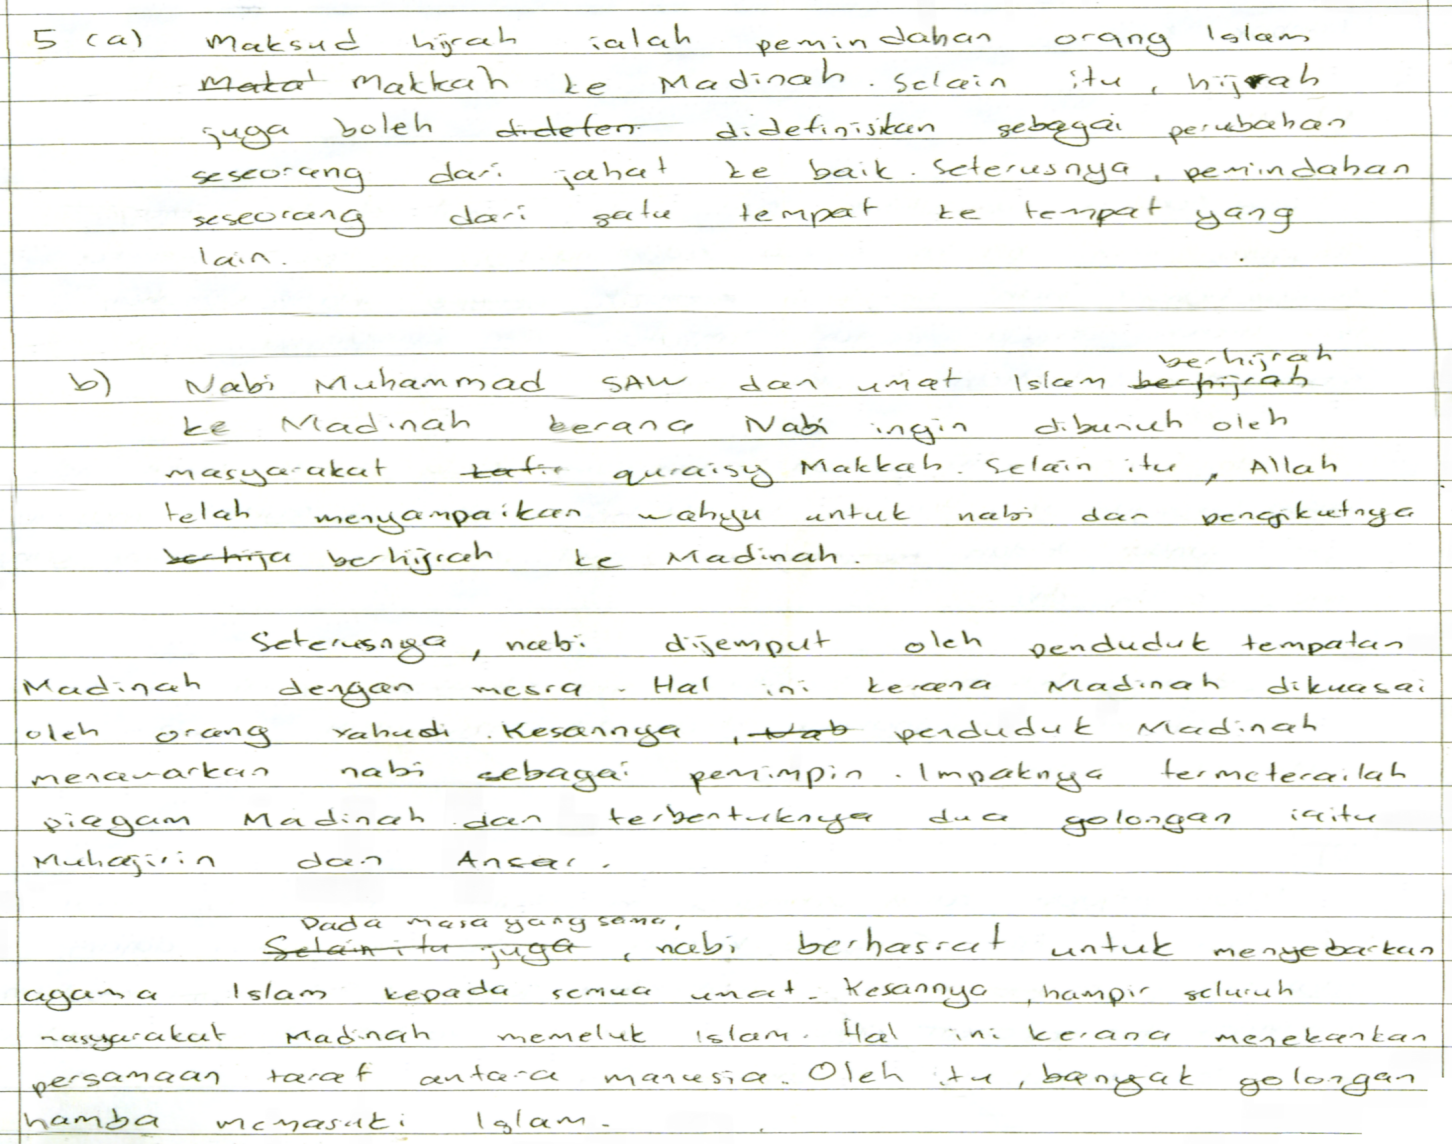 5 (a) Maksud hijrah ialah pemindahan orang Islam
Makkah ke Madinah. Selain itu, hijrah
juga boleh didefinisikan sebagai perubahan
seseorang dari jahat ke baik. Seterusnya, pemindahan
seseorang dari satu tempat ke tempat yang
lain.
b) Nabi Muhammad SAW dan umat Islam berhijrah
ke Madinah kerana Nabi ingin dibunuh oleh
masyarakat quraisy Makkah. Selain itu, Allah
telah menyampaikan wahyu untuk nabi dan pengikutnya
berhijrah ke Madinah.
Seterusnya, nabi dijemput oleh penduduk tempatan
Madinah dengan mesra. Hal ini kerana Madinah dikuasai
oleh orang Yahudi. Kesannya, penduduk Madinah
menawarkan nabi sebagai pemimpin. Impaknya termeterailah
piagam Madinah dan terbentuknya dua golongan iaitu
Muhajirin dan Ansar.
Pada masa yang sama,
nabi berhasrat untuk menyebarkan
agama Islam kepada semua umat. Kesannya, hampir seluruh
masyarakat Madinah memeluk Islam. Hal ini kerana menekankan
persamaan taraf antara manusia. Oleh itu, banyak golongan
hamba memasuki Islam.